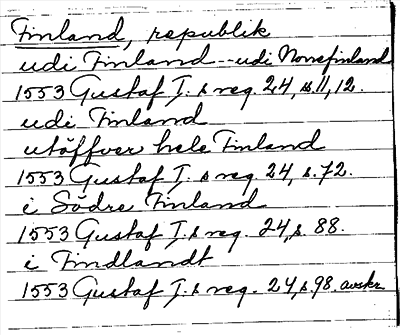 Finland, republik
udi Finland -- udi Norrefinland
1553 Gustaf I:s reg. 24, s. 11, 12.
udi Finland
utöffver hele Finland
1553 Gustaf I:s reg. 24, s. 72.
i Södre Finland
1553 Gustaf I:s reg. 24, s. 88.
i Findlandt
1553 Gustaf I:s reg. 24, s. 98. avskr.